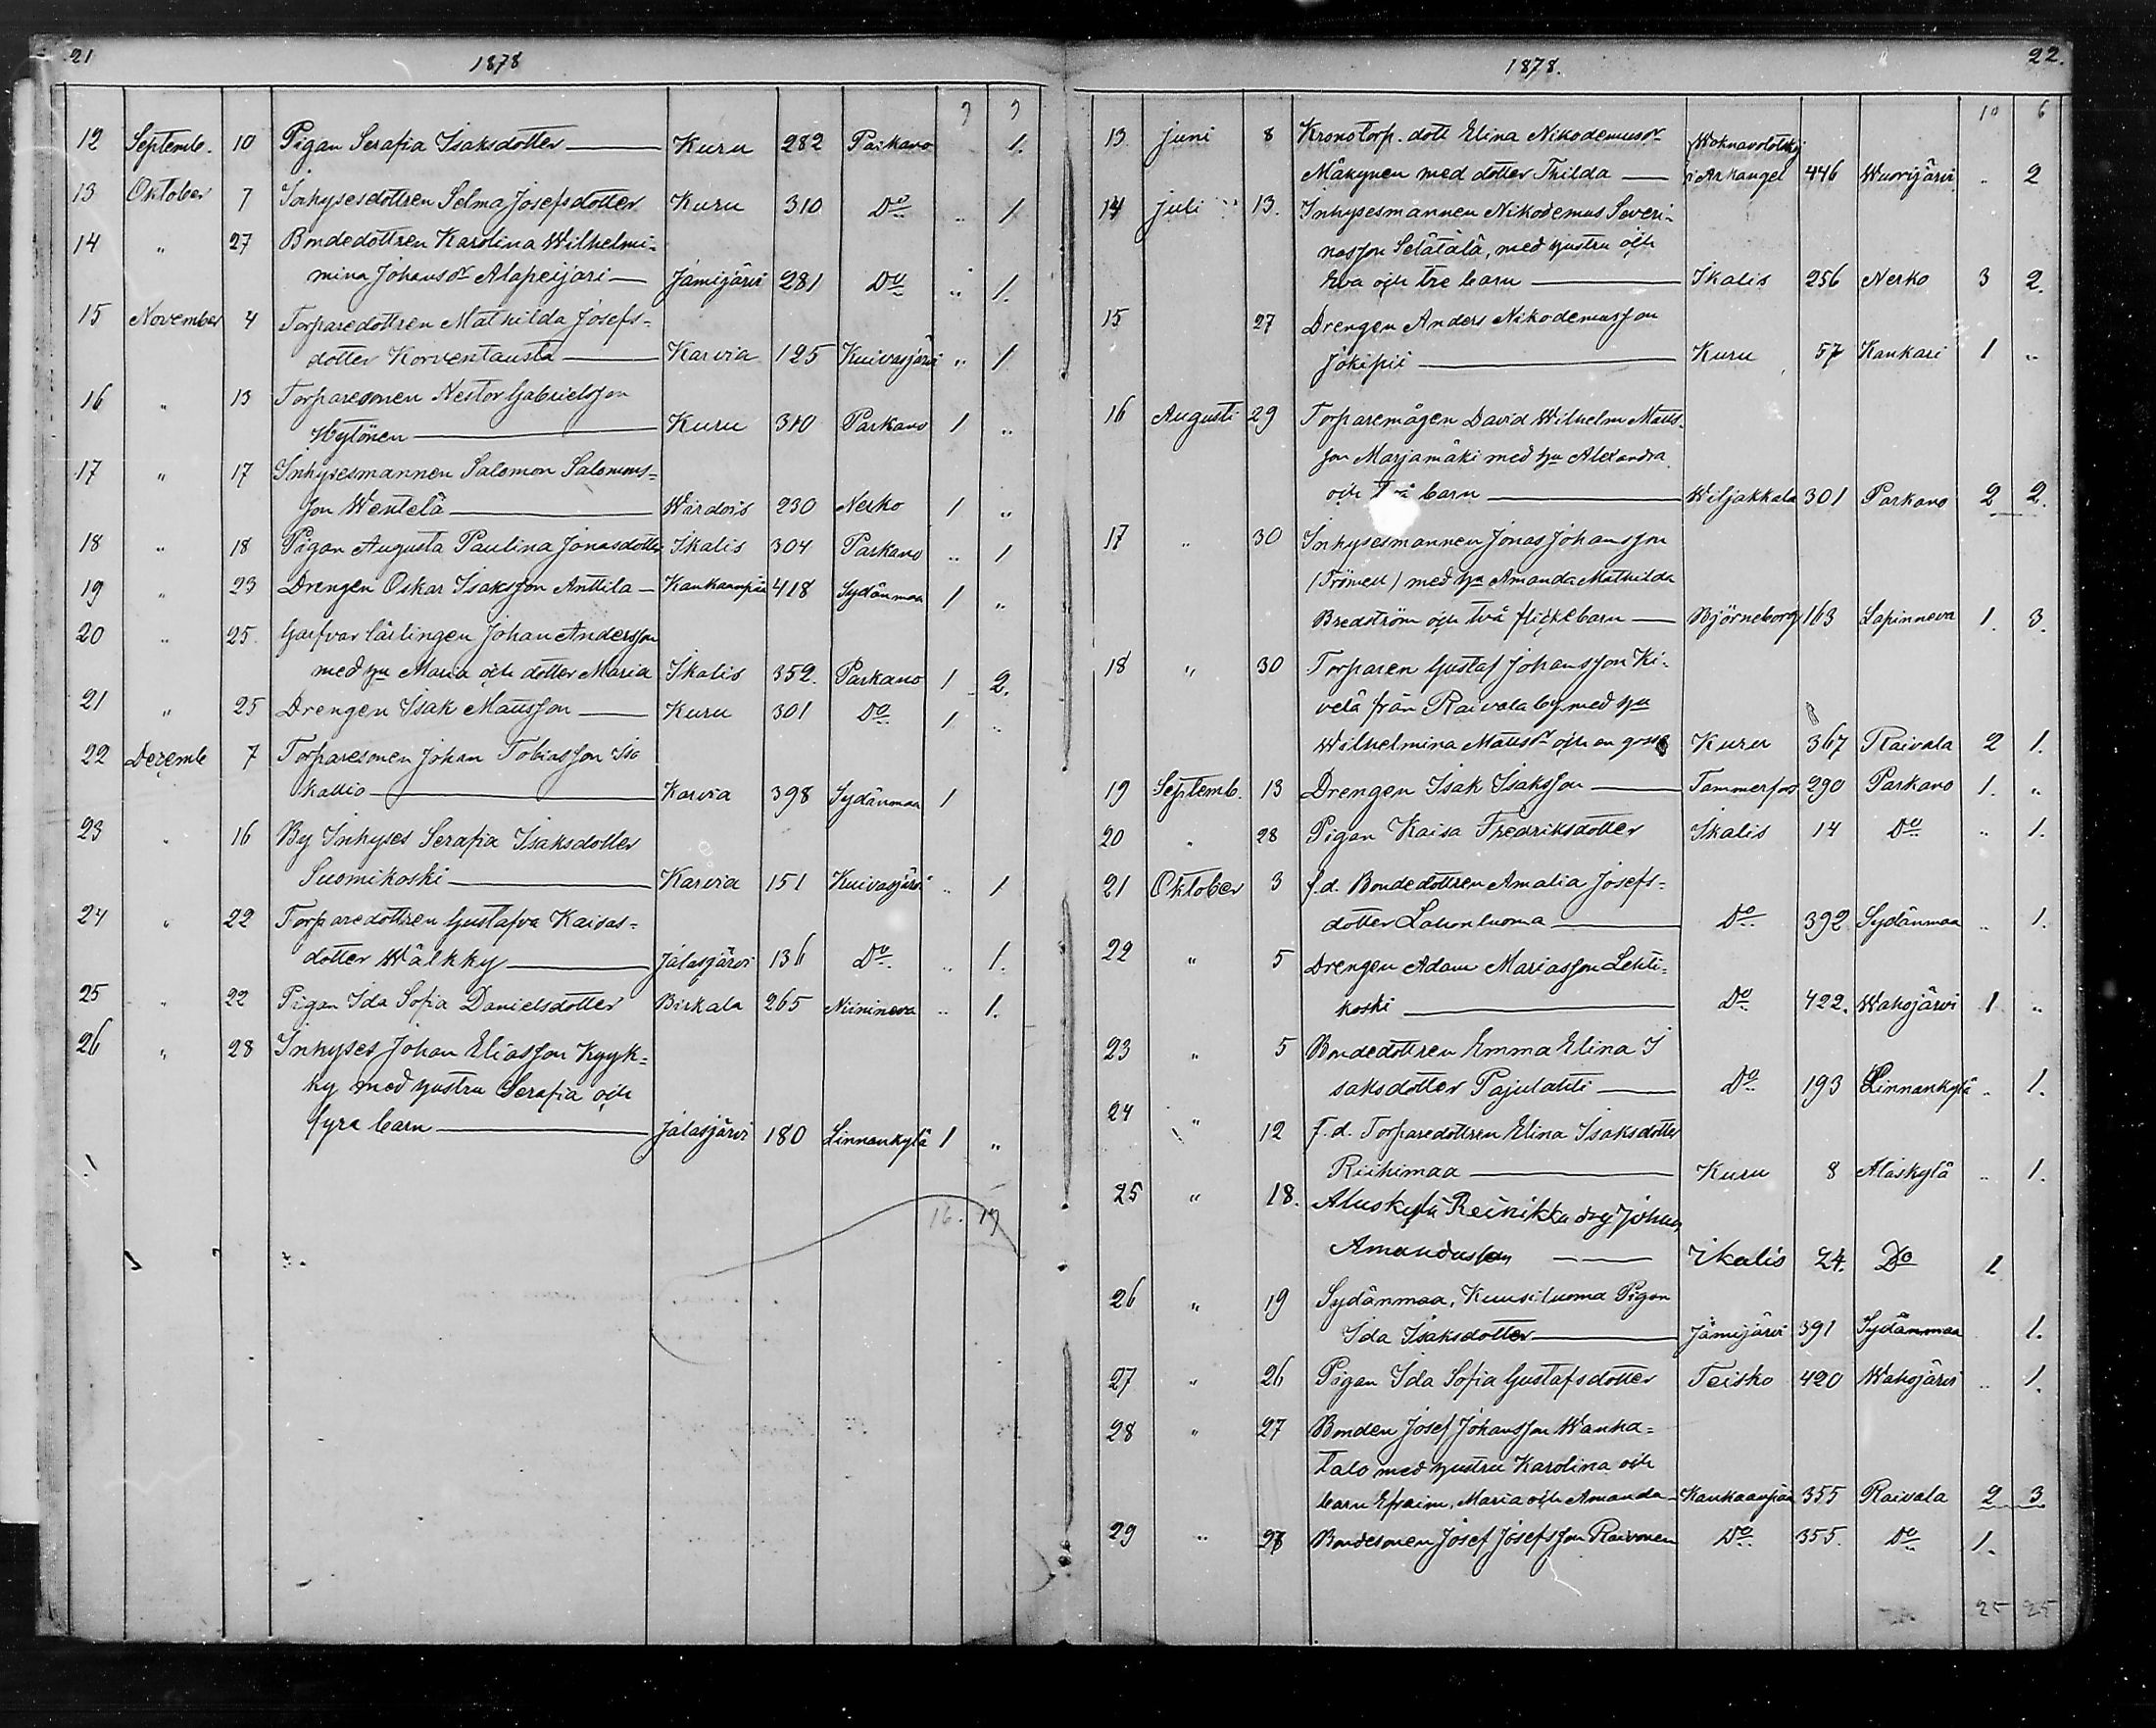 21
1878
9 9
12 Septemb. 10 Pigan Serafia Isaksdotter — Kuru 282 Parkano 1.
13 Oktober 7 Inhysesdottren Selma Josefsdotter Kuru 310 Do „ 1
14 „ 27 Bondedottren Karolina Wilhelmi-
mina Johansdr Alapeijari — Jämijärvi 281 Do „ 1.
15 November 4 Torparedottren Mathilda Josefs-
dotter Korventausta — Karvia 125 Kuivasjärvi „ 1
16 „ 13 Torparesonen Nestor Gabrielsson
Hytönen — Kuru 310 Parkano 1 „
17 „ 17 Inhysesmannen Salomon Salomons-
son Wentelä — Wirdois 230 Nerko 1 „
18 „ 18 Pigan Augusta Paulina Jonasdotter Ikalis 304 Parkano „ 1
19 „ 23 Drengen Oskar Isaksson Anttila — Kankaanpää 418 Sydänmaa 1 „
20 „ 25. Garfvar lärlingen Johan Andersson
med hu Maria och dotter Maria Ikalis 352. Parkano 1 2.
21 „ 25 Drengen Isak Mattsson — Kuru 301 Do 1 „
22 Dezemb 7 Torparesonen Johan Tobiasson Iso
kallio — Karvia 398 Sydänmaa 1
23 „ 16 By Inhyses Serafia Isaksdotter
Suomikoski — Karvia 151 Kuivasjärvi „ 1
24 „ 22 Torparedottren Gustafva Kaisas-
dotter Wälkky — Jalasjärvi 136 Do „ 1.
25 „ 22 Pigan Ida Sofia Danielsdotter Birkala 265 Niinineva „ 1.
26 „ 28 Inhyses Johan Eliasson Kyyk-
ky med hustru Serafia och
fyra barn — Jalasjärvi 180 Linnankylä 1 „
16. 19
1878.
22.
10 6
13 juni 8 Kronotorp. dott Elina Nikodemusdr
Mäkynen med dotter Thilda — i Arkangel 446 Wuorijärvi „ 2
14 juli 13. Inhysesmannen Nikodemus Severi-
nasson Setätalä, med hustru och
Eva och tre barn — Ikalis 256 Nerko 3 2.
15 27 Drengen Anders Nikodemusson
Jokipii — Kuru 57 Kankari 1 „
16 Augusti 29 Torparemågen David Wilhelm Matts-
son Marjamäki med hu Alexandra
och två barn — Wiljakkala 301 Parkano 2 2.
17 „ 30 Inhysesmannen Jonas Johansson
(Frömell) med hu Amanda Mathilda
Bredström och två flickebarn — Björneborg 163 Lapinneva 1. 3.
18 „ 30 Torparen Gustaf Johansson Ki-
velä från Raivala by med hu
Wilhelmina Mattsdr och en gosse Kuru 367 Raivala 2 1.
19 Septemb. 13 Drengen Isak Isaksson — Tammerfors 290 Parkano 1. „
20 „ 28 Pigan Kaisa Fredriksdotter Ikalis 14 Do „ 1.
21 Oktober 3 f.d. Bondedottren Amalia Josefs-
dotter Latvonluoma — Do 392 Sydänmaa „ 1.
22 „ 5 Drengen Adam Mariasson Lehti-
koski — Do 422. Wahojärvi 1 „
23 „ 5 Bondedottren Emma Elina I
saksdotter Pajulahti — Do 193 Linnankylä „ 1.
24 „ 12 f.d. Torparedottren Elina Isaksdotter
Riihimaa — Kuru 8 Alaskylä „ 1.
25 „ 18. Alaskylä Reinikka drg Johan
Amandusson — Ikalis 24. Do 1
26 „ 19 Sydänmaa, Kuusiluoma Pigan
Ida Isaksdotter — Jämijärvi 391 Sydänmaa 1.
27 „ 26 Pigan Ida Sofia Gustafsdotter Teisko 420 Wahojärvi „ 1.
28 „ 27 Bonden Josef Johansson Wanha-
talo med hustru Karolina och
barn Efraim, Maria och Amanda — Kankaanpää 355 Raivala 2 3.
29 „ 27 Bondesonen Josef Josefsson Raivonen Do 355. Do 1.
25 25